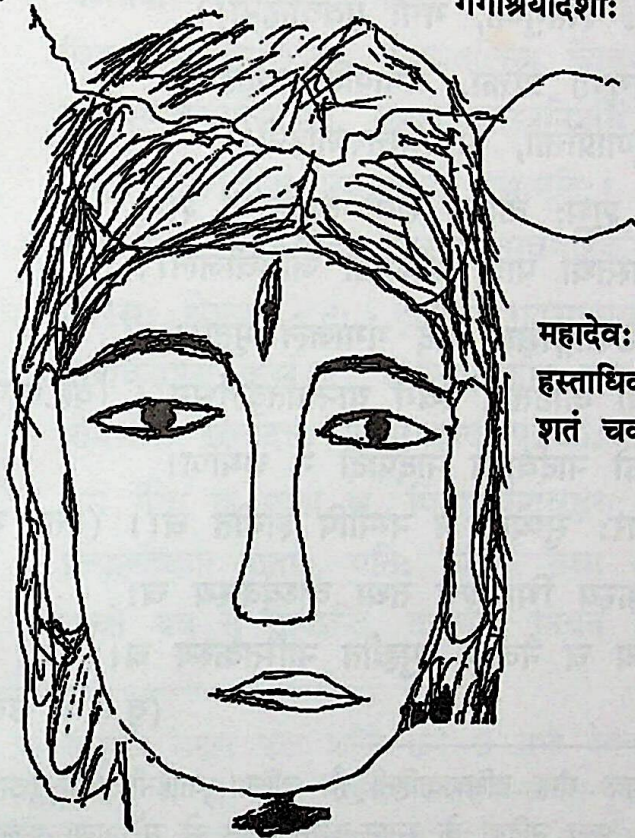 गंगाश्रयादेशाः
महादेवः
हस्ताधि
शतं च